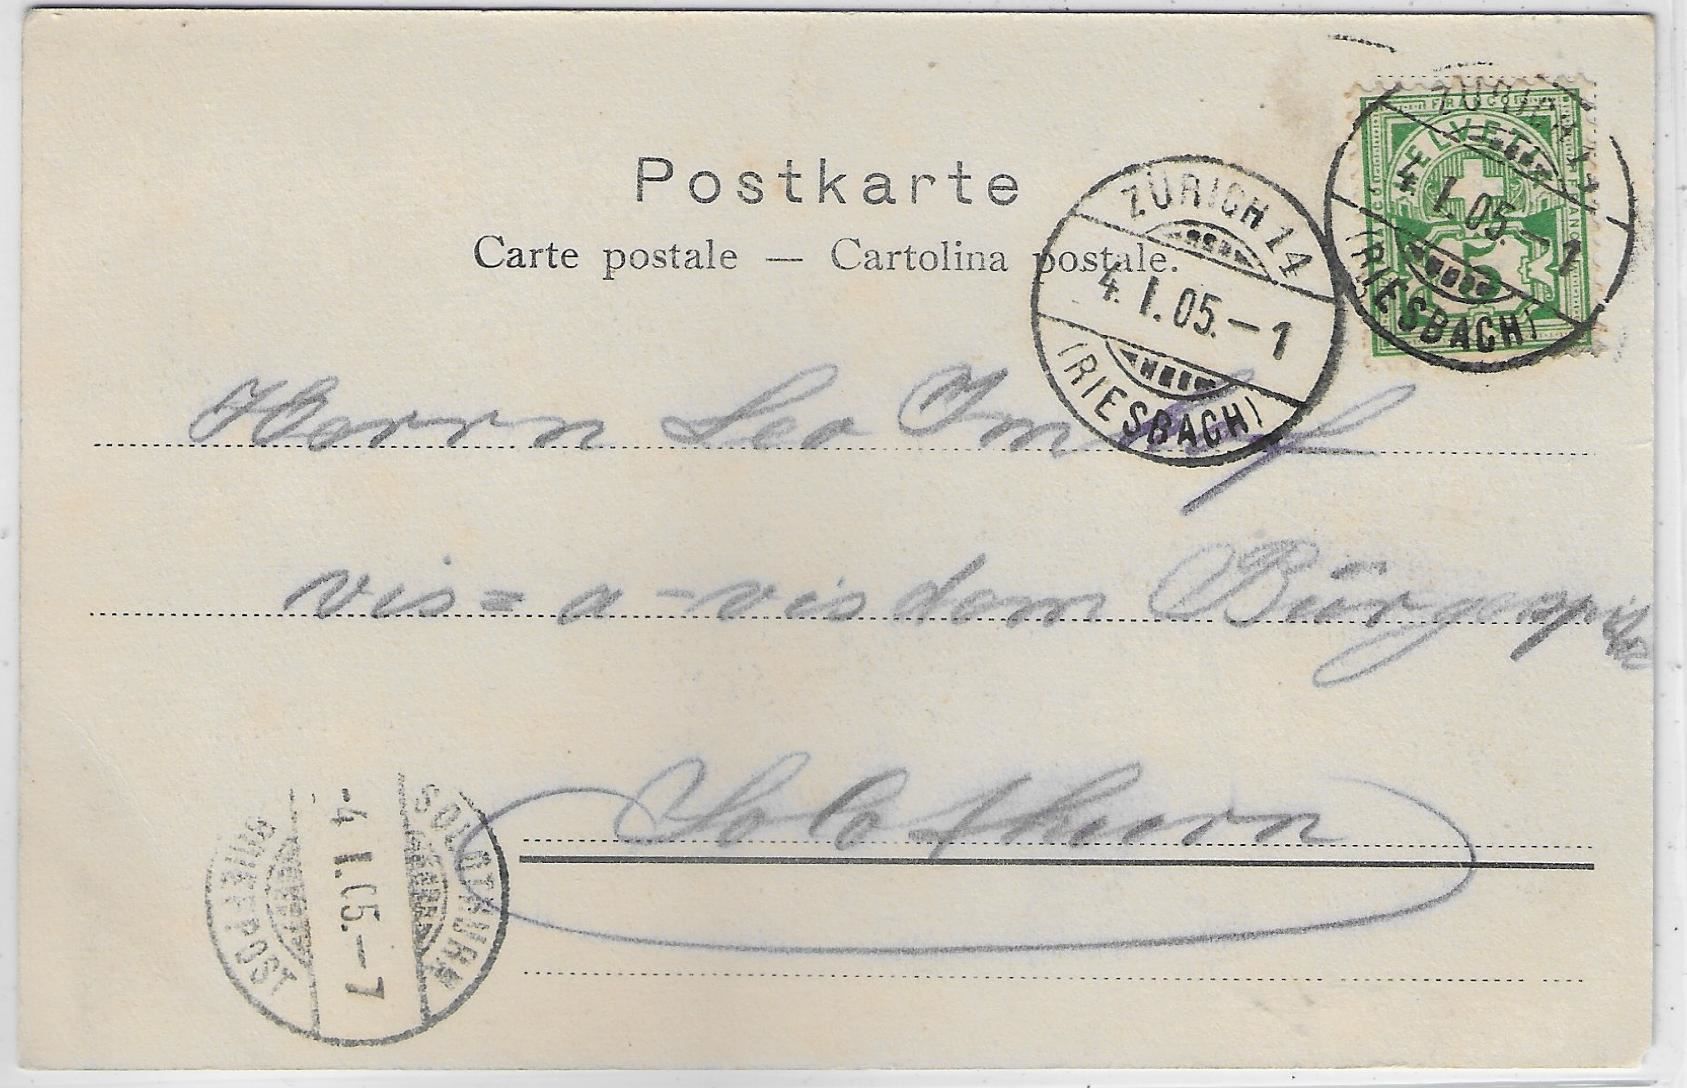 Postkarte
Carte postale — Cartolina postale.
ZÜRICH 14
4. I. 05. – 1
(RIESBACH)
ZÜRICH 14
4. I. 05. – 1
(RIESBACH)
FRANCO
HELVETIA
5
Herrn Leo Imhof
vis=a-vis dem Bürgerspital
Solothurn
SOLOTHURN
-4 I. 05. – 7
BRIEFPOST